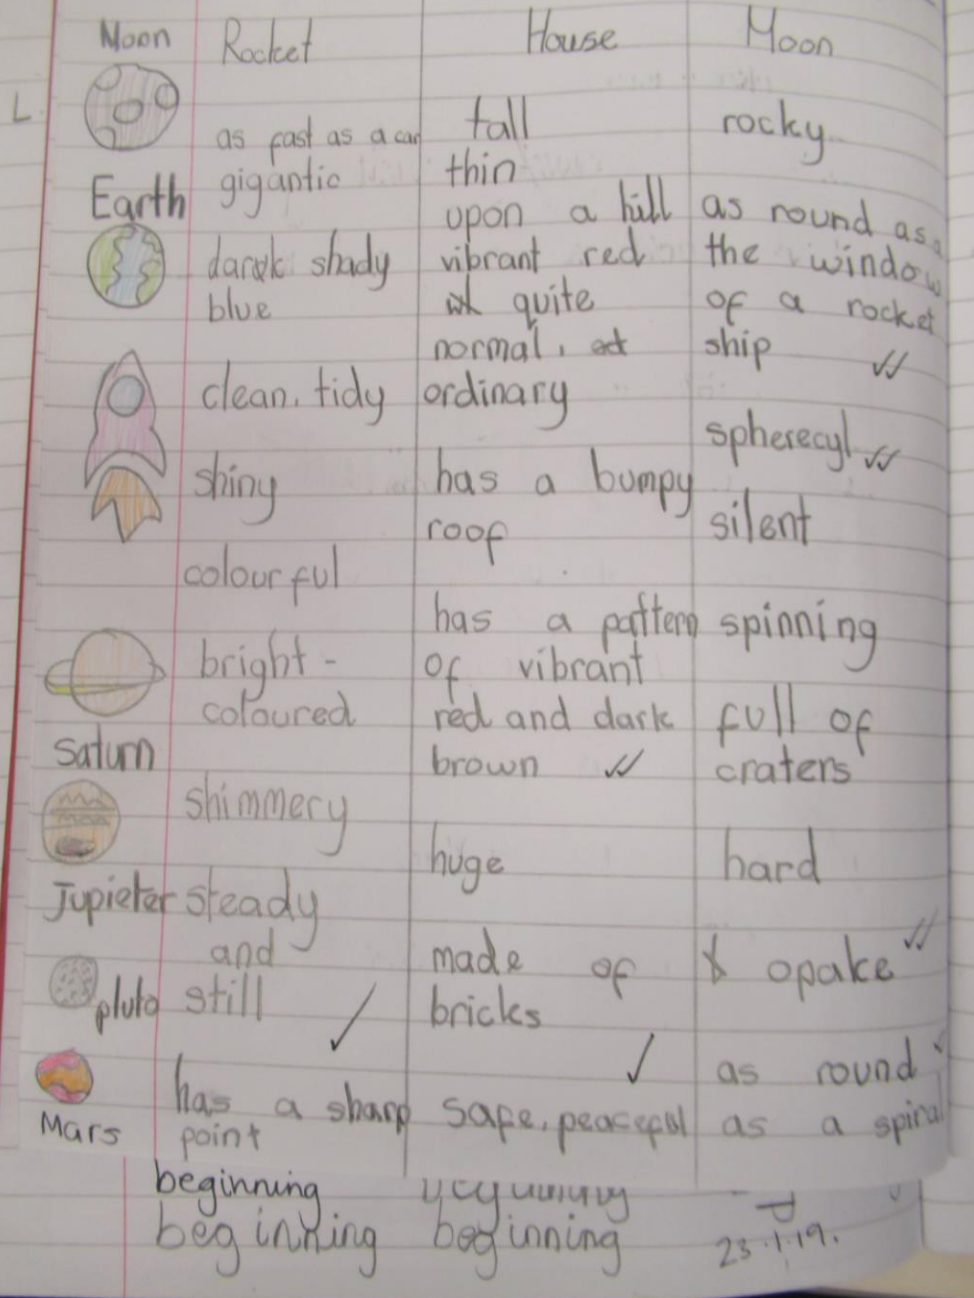 Moon
Earth
Saturn
Jupieter
pluto
Mars
Rocket
as fast as a car
gigantic
dark shady
blue
clean, tidy
shiny
colourful
bright-
coloured
shimmery
steady
and
still
has a sharp
point
House
tall
thin
upon a hill
vibrant red
quite
normal,
ordinary
has a bumpy
roof
has a pattern
of vibrant
red and dark
brown
huge
made of
bricks
safe, peaceful
Moon
rocky
as round as
the window
of a rocket
ship
spherecyl
silent
spinning
full of
craters
hard
opake
as round
as a spiral
beginning
beginning beginning
23.1.19.
L